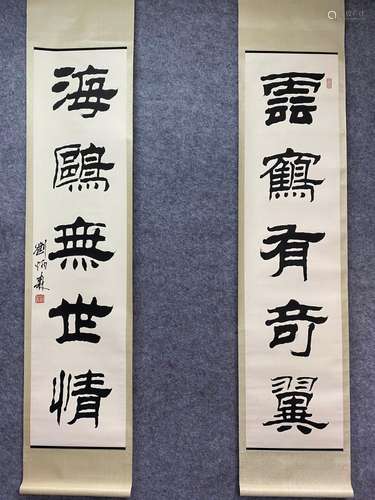 雲鶴有奇翼
海鷗無世情
劉炳森